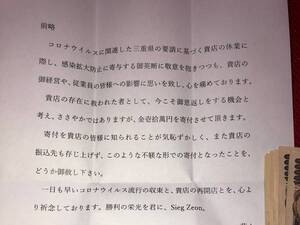 前略
コロナウイルスに関連した三重県の要請に基づく貴店の休業に
際し、感染拡大防止に寄与する御英断に敬意を抱きつつも、貴店の
御経営や、従業員の皆様への影響に思いを致し、心を痛めております。
貴店の存在に救われた者として、今こそ御恩返しをする機会と
考え、ささやかではありますが、金壱拾萬円を寄付させて頂きます。
寄付を貴店の皆様に知られることが気恥ずかしく、また貴店の
振込先も存じ上げず、このような不躾な形での寄付となったことを、
どうか御赦し下さい。
一日も早いコロナウイルス流行の収束と、貴店の再開店とを、心よ
り祈念しております。勝利の栄光を君に。Sieg Zeon。